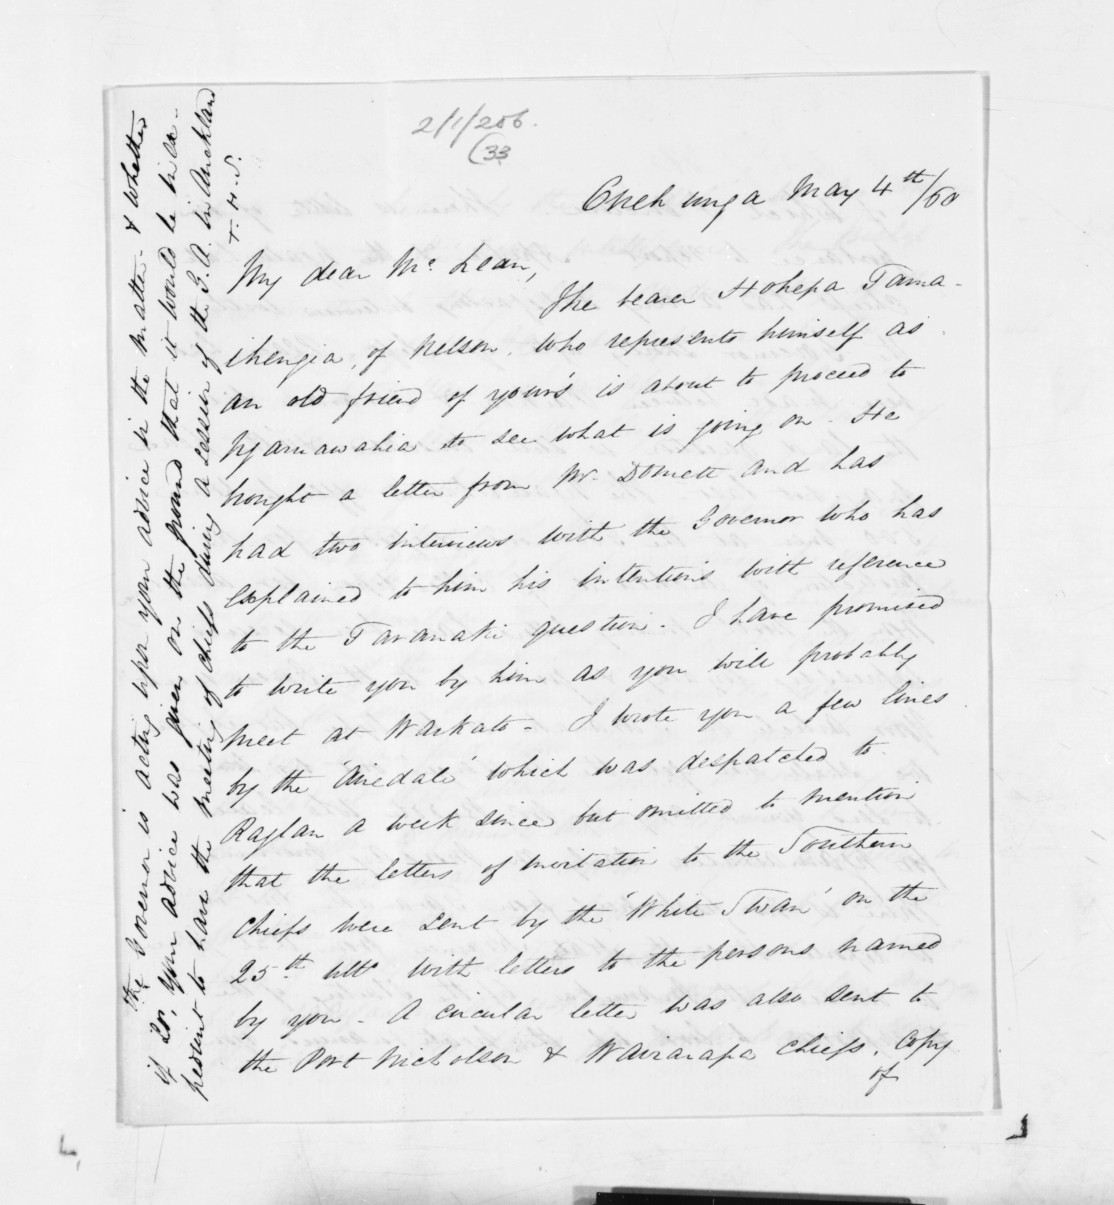 2/1/256.
(33
Onehunga May 4th/60
My dear Mc. Lean,
The bearer Hohepa Tama-
ihengia, of Nelson, who represents himself as
an old friend of your's is about to proceed to
Ngaruawahia to see what is going on. He
brought a letter from Mr. Domett and has
had two interviews with the Governor who has
explained to him his intentions with reference
to the Taranaki question. I have promised
to write you by him as you will probably
meet at Waikato. I wrote you a few lines
by the 'Airedale' which was despatched to
Raglan a week since but omitted to mention
that the letters of invitation to the Southern
chiefs were sent by the 'White Swan' on the
25th ulto. with letters to the persons named
by you. A circular letter was also sent to
the Port Nicholson & Wairarapa chiefs. Copy
of
the Governor is acting upon your advice in the matter & whether
if so, your advice was given on the ground that it would be inex-
pedient to have the meeting of chiefs during a session of the G.A. in Auckland
T.H.S.